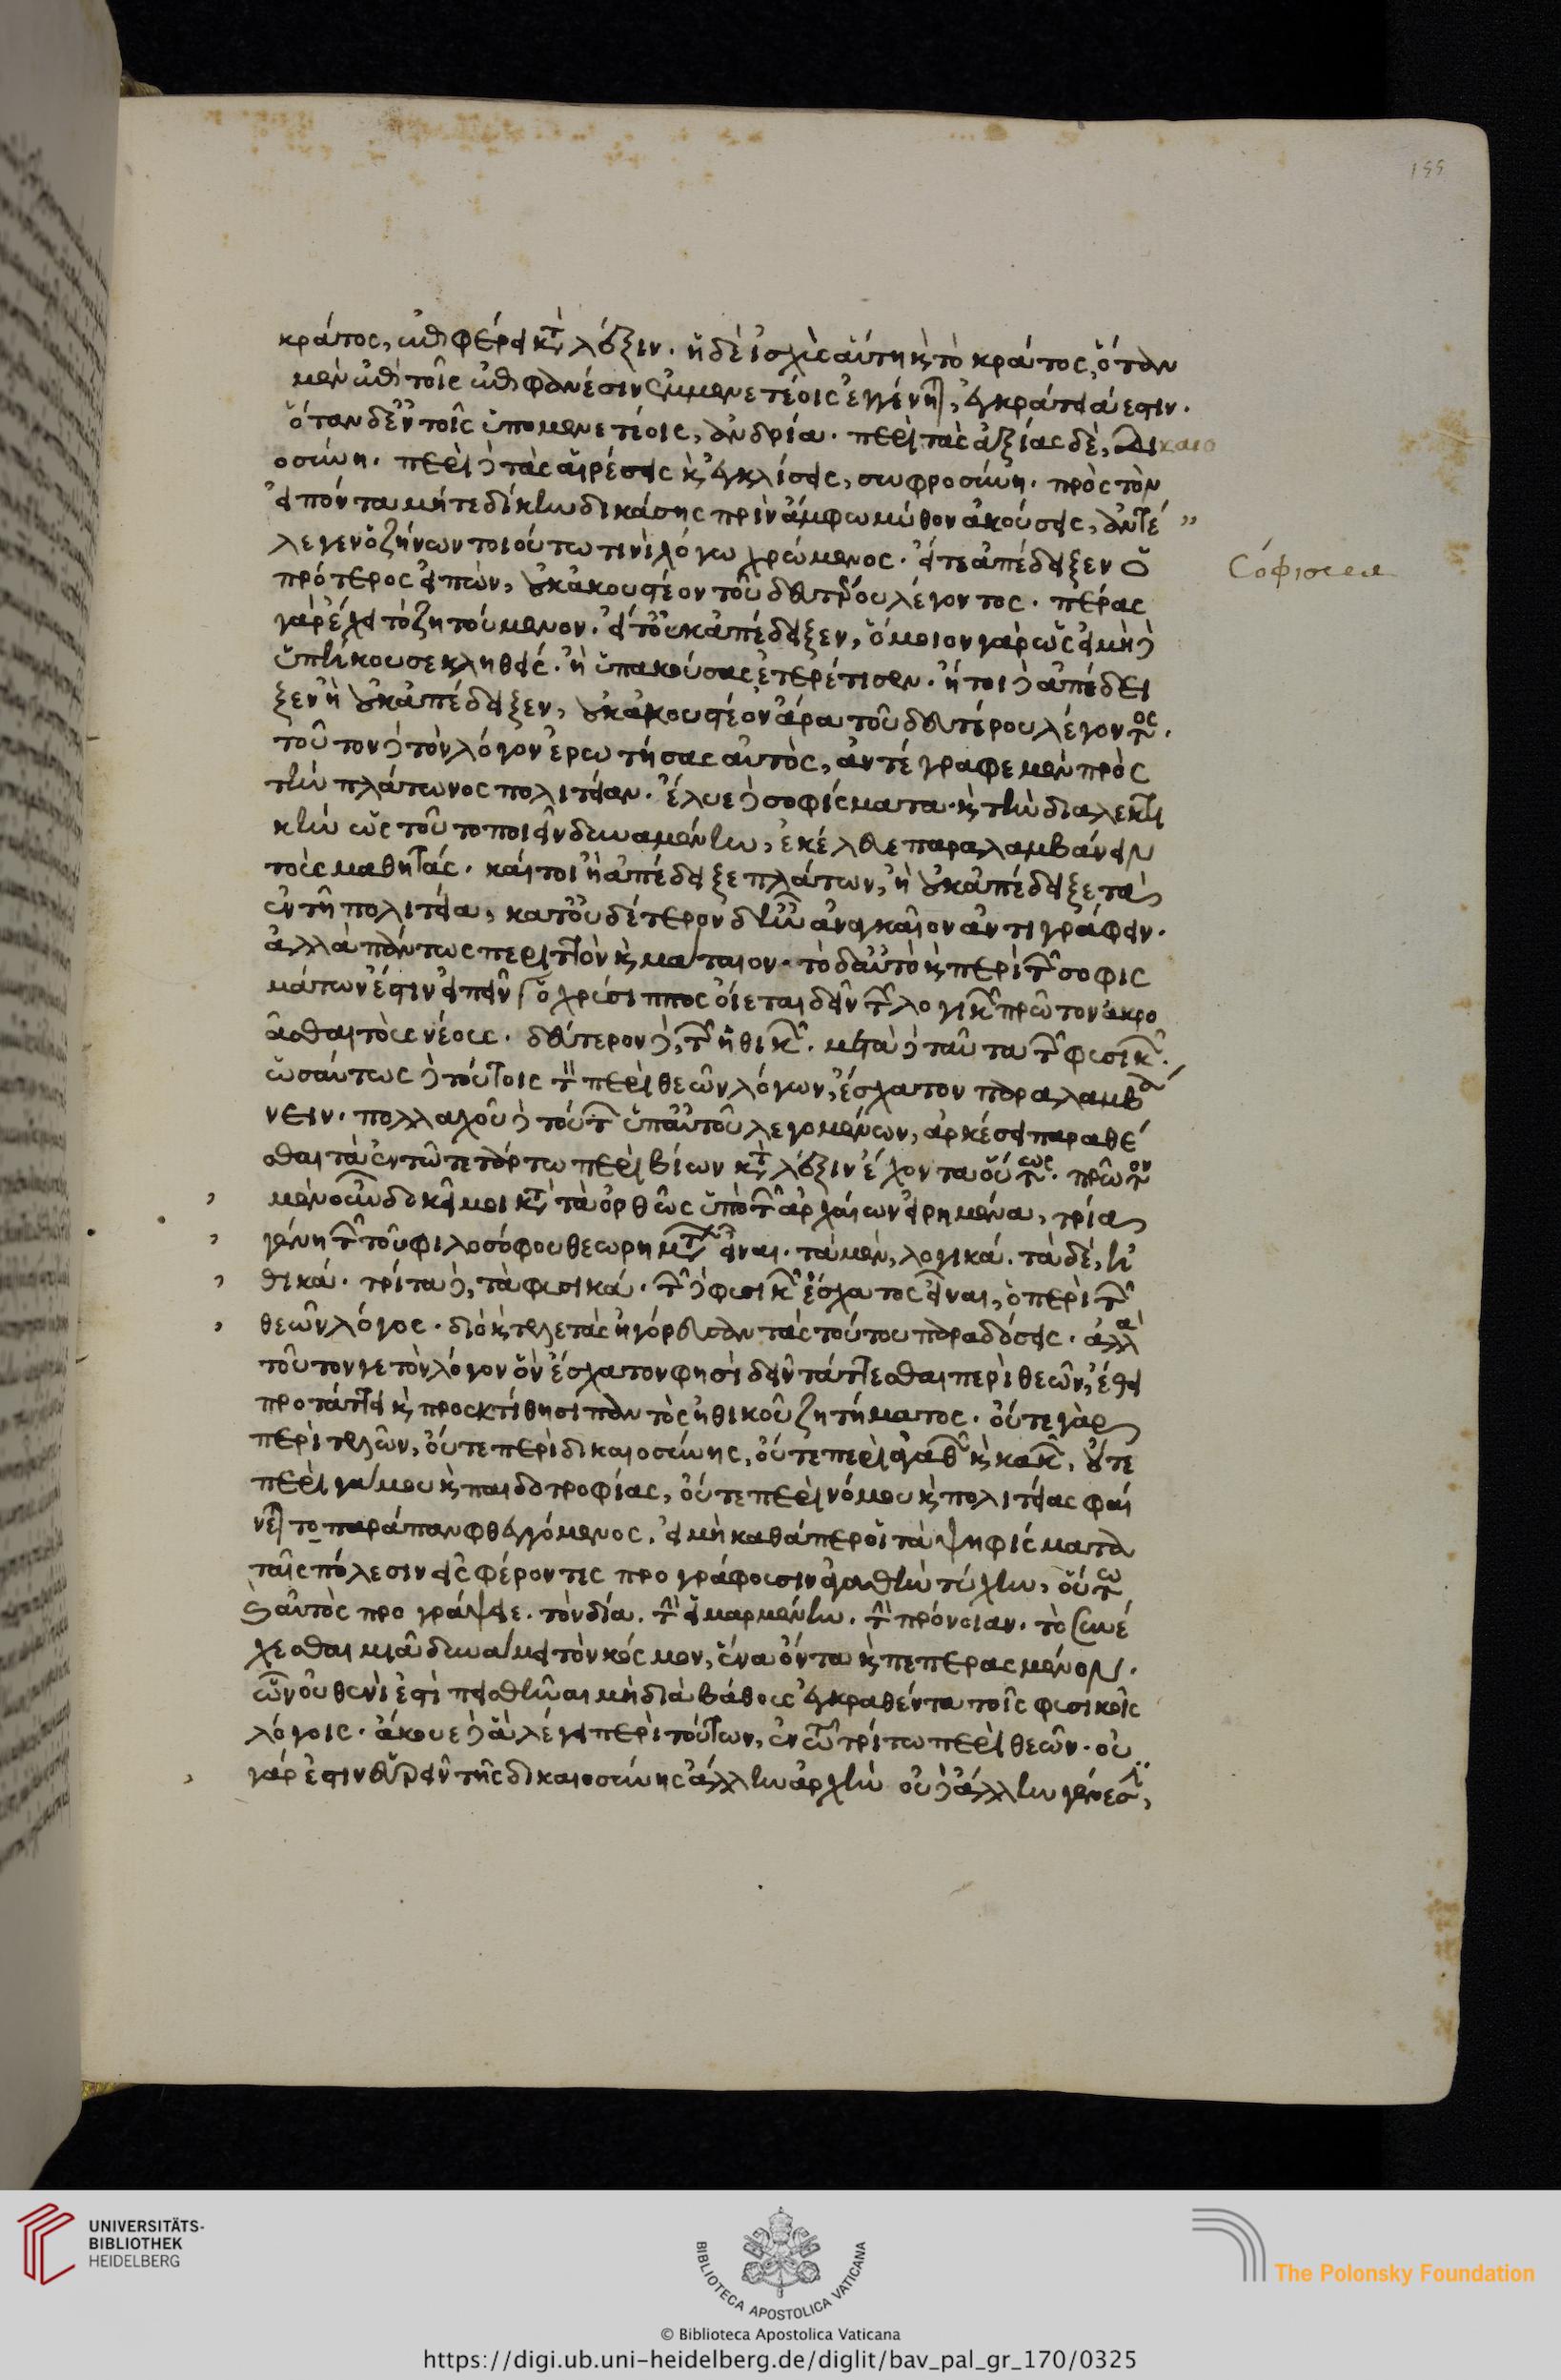 κράτος, ἐπιφέρει κατὰ λέξιν. ἡ δὲ ἰσχὺς αὕτη καὶ τὸ κράτος, ὅταν
μὲν ἐπὶ τοῖς ἐπιφανέσιν ἐμμενετέοις ἐγγένηται, ἐγκράτειά ἐστιν.
ὅταν δ' ἐν τοῖς ὑπομενετέοις, ἀνδρία. περὶ τὰς ἀξίας δὲ, δικαιο
οσύνη. περὶ δὲ τὰς αἱρέσεις καὶ ἐκκλίσεις, σωφροσύνη. πρὸς τὸν
εἰπόντα μήτε δίκην δικάσης πρὶν ἄμφω μῦθον ἀκούσεις, ἀντέ
λεγεν ὁ ζήνων τοιούτω τινὶ λόγω χρώμενος. εἴτε ἀπέδειξεν ὁ
πρότερος εἰπών, οὐκ ἀκουστέον τοῦ δευτέρου λέγοντος. πέρας
γὰρ ἔχει τὸ ζητούμενον. εἴτ' οὐκ ἀπέδειξεν, ὅμοιον γὰρ ὡς εἰ μὴ δὲ
ὑπήκουσε κληθείς. ἢ ὑπακούσας ἐτερέτισεν. ἤτοι δὲ ἀπέδει
ξεν ἢ οὐκ ἀπέδειξεν, οὐκ ἀκουστέον ἄρα τοῦ δευτέρου λέγοντος.
τοῦτον δὲ τὸν λόγον ἐρωτήσας αὐτὸς, ἀντέγραφε μὲν πρὸς
τὴν πλάτωνος πολιτείαν. ἔλυε δὲ σοφίσματα. καὶ τὴν διαλεκτι
κὴν ὡς τοῦτο ποιεῖν δυναμένην, ἐκέλευε παραλαμβάνειν
τοὺς μαθητάς. καίτοι ἢ ἀπέδειξε πλάτων, ἢ οὐκ ἀπέδειξε τὰ
ἐν τῇ πολιτεία, κατ' οὐδέτερον δ' ἦν ἀναγκαῖον ἀντιγράφειν.
ἀλλὰ πάντως περιττὸν καὶ μάταιον. τὸ δ' αὐτὸ καὶ περὶ τῶν σοφισ
μάτων ἔστιν εἰπεῖν ὁ χρύσιππος οἴεται δεῖν τῶν λογικῶν πρῶτον ἀκρο
ᾶσθαι τοὺς νέους. δεύτερον δὲ, τῶν ἠθικῶν. μετὰ δὲ ταῦτα τῶν φυσικῶν.
ὡσαύτως δὲ τούτοις τὸν περὶ θεῶν λόγων, ἔσχατον παραλαμβά
νειν. πολλαχοῦ δὲ τούτων ὑπ' αὐτοῦ λεγομένων, ἀρκέσει παραθέ
σθαι τὰ ἐν τῶ τετάρτω περὶ βίων κατὰ λέξιν ἔχοντα οὕτως. πρῶτον
μὲν οὖν δοκεῖ μοι κατὰ τὰ ὀρθῶς ὑπὸ τῶν ἀρχαίων εἰρημένα, τρία
γένη τῶν τοῦ φιλοσόφου θεωρημάτων εἶναι. τὰ μὲν, λογικά. τὰ δὲ, ἠ
θικά. τρίτα δὲ, τὰ φυσικά. τῶν δὲ φυσικῶν ἔσχατος εἶναι, ὁ περὶ τῶν
θεῶν λόγος. διὸ καὶ τελετὰς ἠγόρευσαν τὰς τούτου παραδόσεις. ἀλλὰ
τοῦτον γε τὸν λόγον ὃν ἔσχατον φησὶ δεῖν τάττεσθαι περὶ θεῶν, ἔθει
προτάττει καὶ προεκτίθησι παντὸς ἠθικοῦ ζητήματος. οὔτε γὰρ
περὶ τελῶν, οὔτε περὶ δικαιοσύνης, οὔτε περὶ ἀγαθῶν καὶ κακῶν, οὔτε
περὶ γάμου καὶ παιδοτροφίας, οὔτε περὶ νόμου καὶ πολιτείας φαί
νεται τὸ παράπαν φθεγγόμενος, εἰ μὴ καθάπερ οἱ τὰ ψηφίσματα
ταῖς πόλεσιν εἰσφέροντες προγράφουσιν ἀγαθὴν τύχην, οὕτω
καὶ αὐτὸς προγράψειε. τὸν δία. τὴν εἱμαρμένην. τὴν πρόνοιαν. τὸ συνέ
χεσθαι μιᾶ δυνάμει τὸν κόσμον, ἕνα ὄντα καὶ πεπερασμένον.
ὧν οὐθενὶ ἔστι πεισθῆναι μὴ διὰ βάθους ἐγκραθέντα τοῖς φυσικοῖς
λόγοις. ἄκουε δὲ ἃ λέγει περὶ τούτων, ἐν τῶ τρίτω περὶ θεῶν. οὐ
γάρ ἐστιν εὑρεῖν τῆς δικαιοσύνης ἄλλην ἀρχὴν οὐδὲ ἄλλην γένεσιν,
Σόφισμα
UNIVERSITÄTS-
BIBLIOTHEK
HEIDELBERG
BIBLIOTECA APOSTOLICA VATICANA
The Polonsky Foundation
© Biblioteca Apostolica Vaticana
https://digi.ub.uni-heidelberg.de/diglit/bav_pal_gr_170/0325